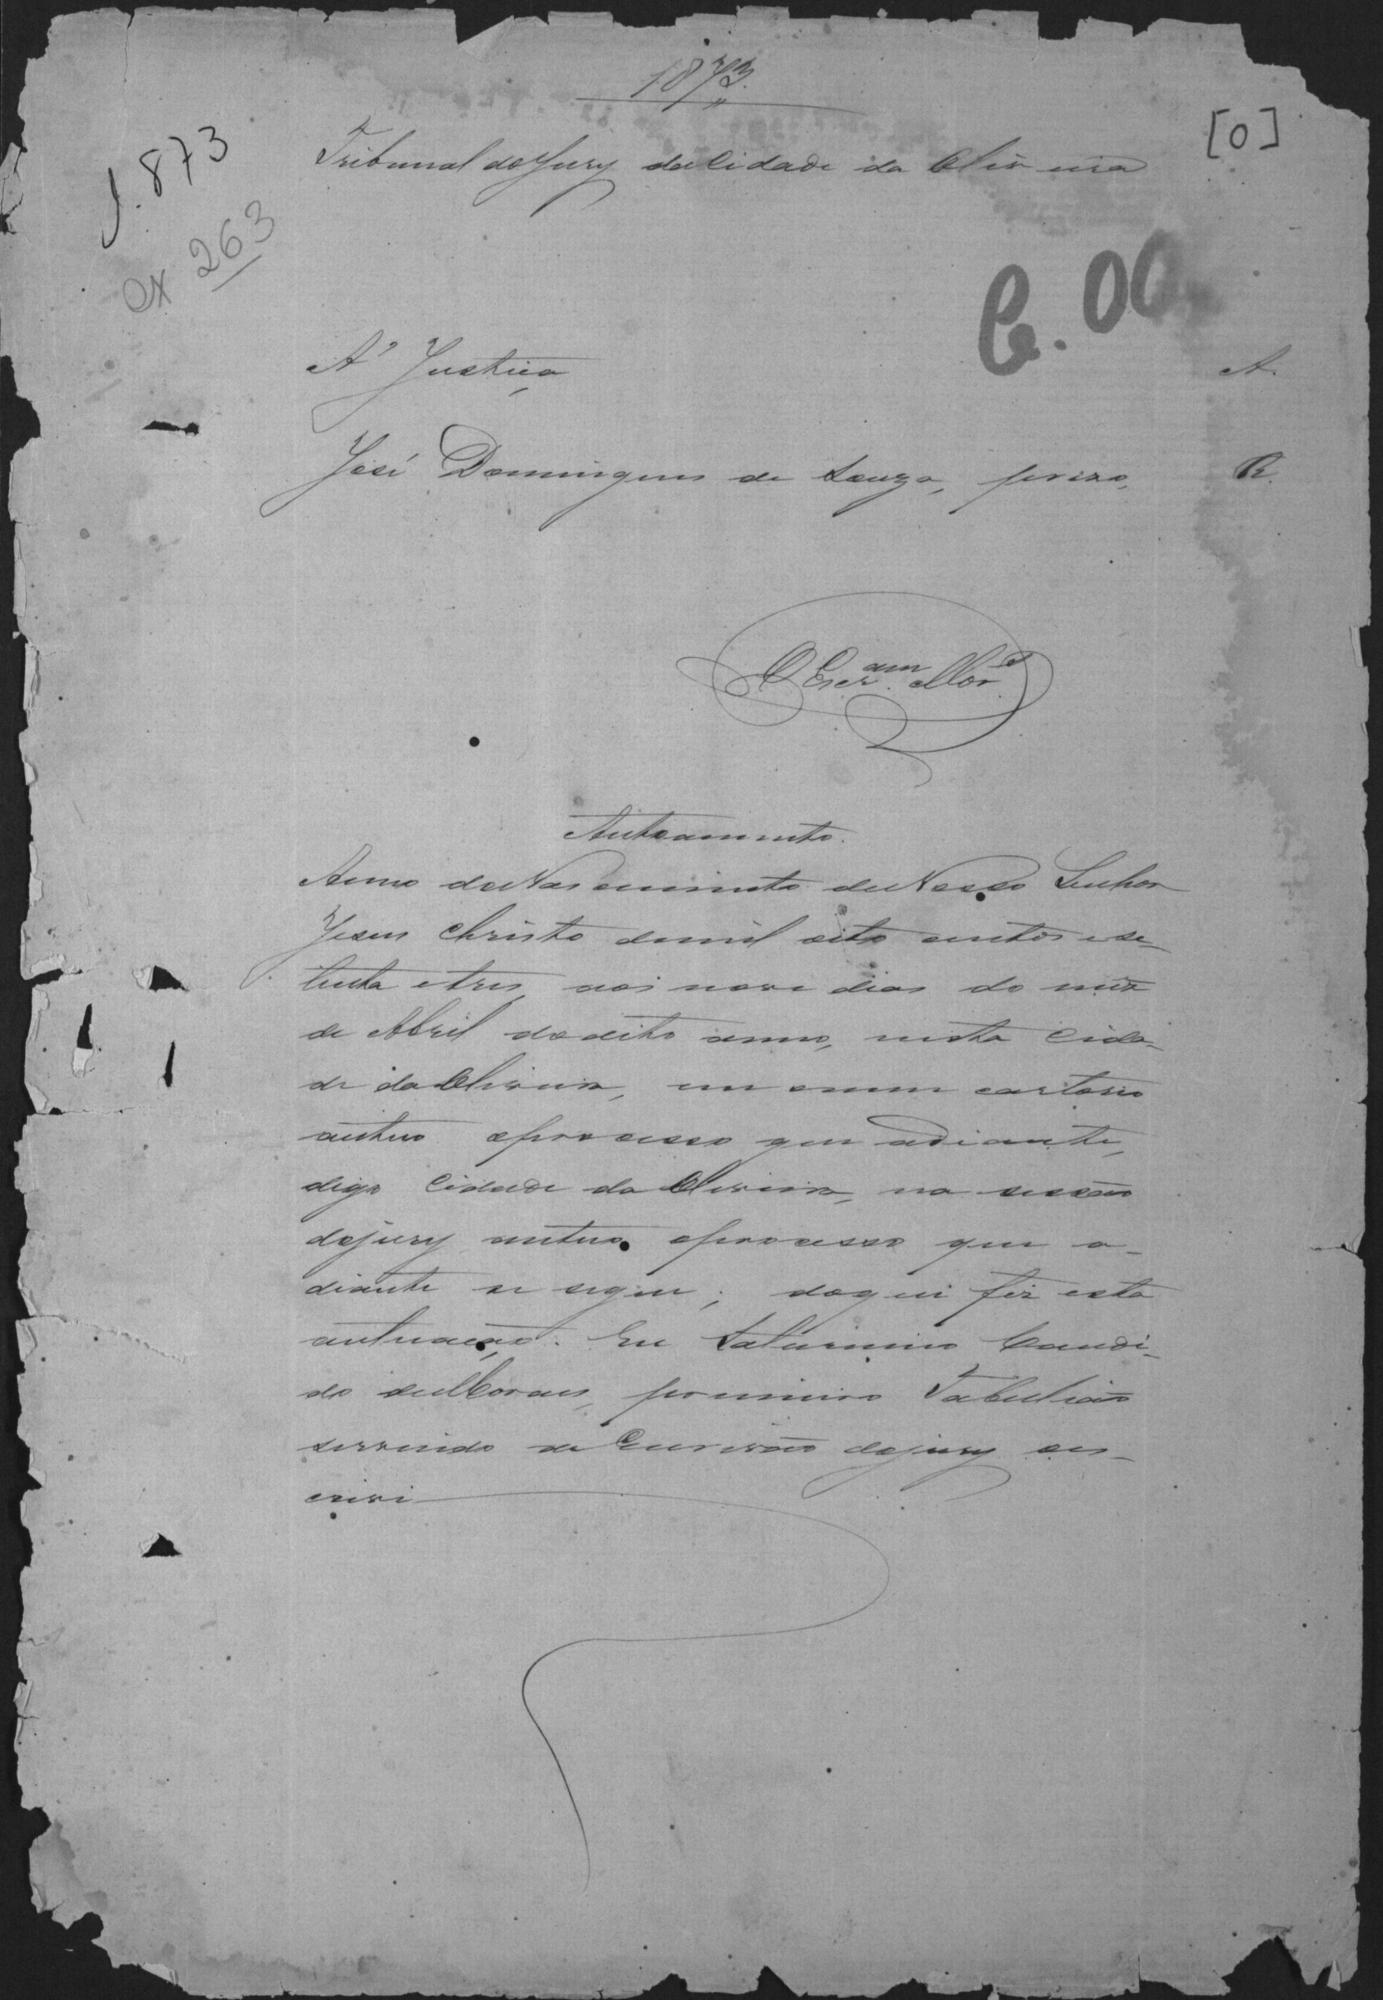 1873.
[0]
J. 873
Cx 263
Tribunal do Jury da Cidade da Oliveira
C. 00
A' Justiça, A.
José Domingues de Souza, prezo, R.
O Escr.am Mor.s
Autoamento.
Anno do Nascimento de Nosso Senhor
Jesus Christo de mil oito centos e se-
tenta e tres, aos nove dias do mez
de Abril do dito anno, nesta Cida-
de da Oliveira, em o meu cartorio
autuo o processo que adiante,
digo Cidade da Oliveira, na sessão
do jury autuo o processo que a-
diante se segue; do que fiz esta
autuação. Eu Saturnino Candi-
do de Moraes, primeiro Tabelião
servindo de Escrivão do jury es-
crivi